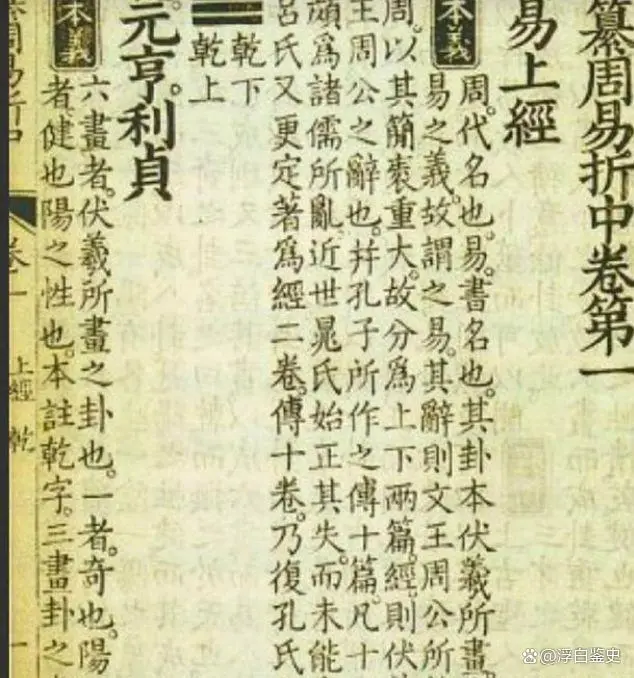 纂周易折中卷第一
易上經
本義
周。代名也。易。書名也。其卦本伏羲所畫
易之義。故謂之易。其辭則文王周公所
周。以其簡袠重大。故分爲上下兩篇。經則伏
王周公之辭也。幷孔子所作之傳十篇。凡十
頗爲諸儒所亂。近世晁氏始正其失。而未能
呂氏又更定著爲經二卷。傳十卷。乃復孔氏
乾下
乾上
元亨。利貞
本義
六畫者。伏羲所畫之卦也。一者。奇也。陽
者健也陽之性也。本註乾字。三畫卦之
周易折中
卷一
上經 乾
一
浮白鉴史